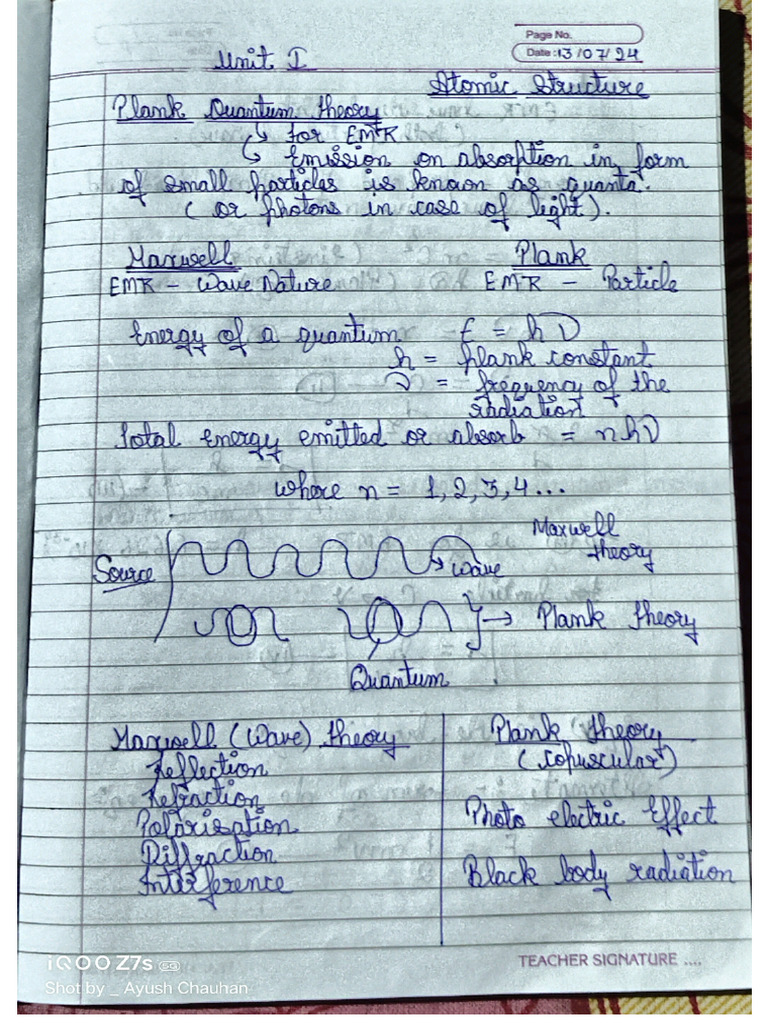 Page No.
Date: 13/07/24
Unit I
Atomic Structure
Plank Quantum theory
↳ for EMR
↳ Emission on absorption in form
of small particles is known as quanta.
( or photons in case of light ).
Maxwell Plank
EMR – Wave Nature EMR – Particle
Energy of a quantum = E = hν
h = plank constant
ν = frequency of the
radiation
Total energy emitted or absorb = nhν
where n = 1, 2, 3, 4 ...
Maxwell
theory
Source
wave
→ Plank theory
Quantum
Maxwell (Wave) theory
Reflection
Refraction
Polarisation
Diffraction
Interference
Plank theory
( copuscular )
Photo electric Effect
Black body radiation
TEACHER SIGNATURE ....
iQOO Z7s 5G
Shot by _ Ayush Chauhan